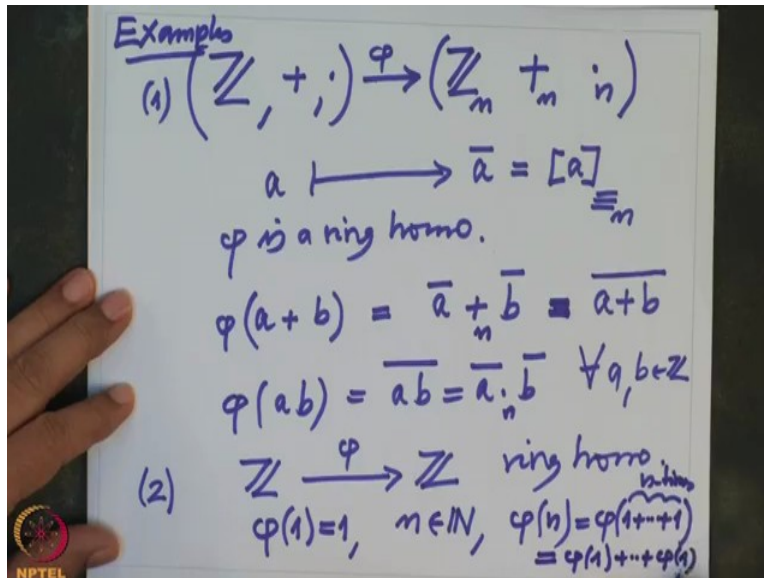 Examples
(1) (ℤ, +, ·) φ→ (ℤₙ +ₙ ·ₙ)
a ⟼ ā = [a]≡ₙ
φ is a ring homo.
φ(a + b) = ā +ₙ b̄ = \overline{a+b}
φ(ab) = \overline{ab} = ā ·ₙ b̄ ∀ a, b ∈ ℤ
(2) ℤ φ→ ℤ ring homo.
n-times
φ(1)=1, n∈ℕ, φ(n) = φ(1+··+1)
= φ(1)+··+φ(1)
NPTEL